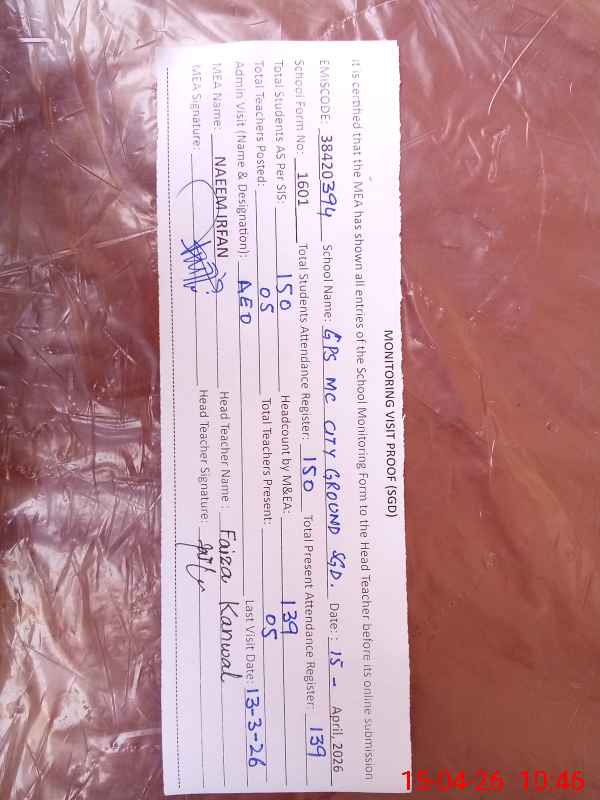 MONITORING VISIT PROOF (SGD)
It is certified that the MEA has shown all entries of the School Monitoring Form to the Head Teacher before its online submission
EMISCODE: 38420394 School Name: GPS MC CITY GROUND SGD. Date: : 15 - April, 2026
School Form No: 1601 Total Students Attendance Register: 150 Total Present Attendance Register: 139
Total Students AS Per SIS: 150 Headcount by M&EA: 139
Total Teachers Posted: 05 Total Teachers Present: 05
Admin Visit (Name & Designation): AEO Last Visit Date: 13-3-26
MEA Name: NAEEM IRFAN Head Teacher Name : Faiza Kanwal
MEA Signature: Head Teacher Signature:
15-04-26 10:46